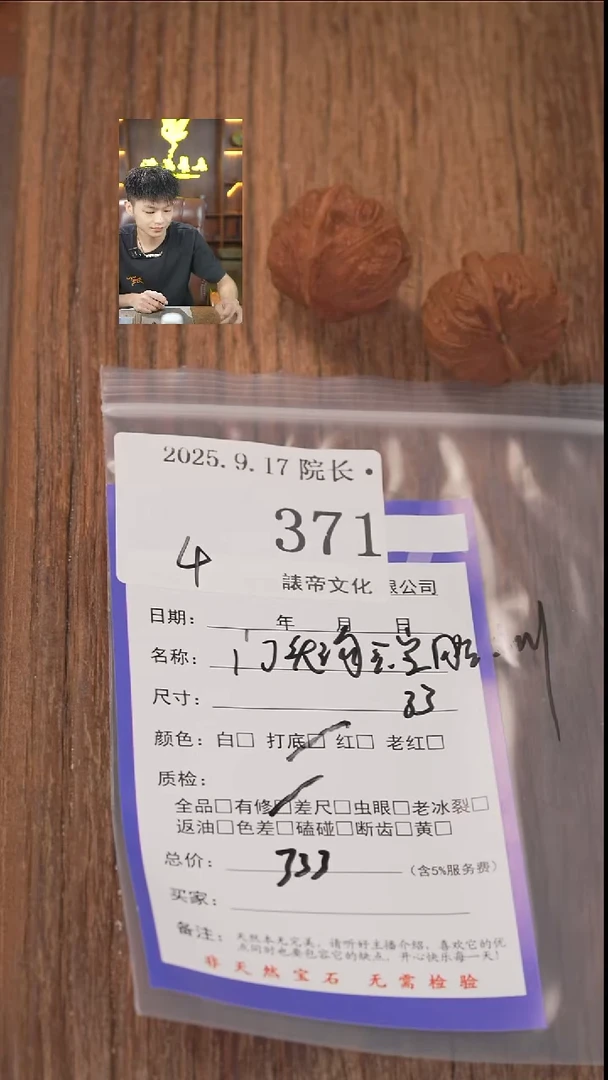 2025.9.17 院长·
371
4
誐帝文化 限公司
日期: 年 月 日
名称:
尺寸: 33
颜色: 白□ 打底□ 红□ 老红□
质检:
全品□有修□差尺□虫眼□老冰裂□
返油□色差□磕碰□断齿□黄□
总价: 333 (含5%服务费)
买家:
备注: 天然本无完美, 请听好主播介绍, 喜欢它的优
点同时也要包容它的缺点, 开心快乐每一天!
非天然宝石 无需检验